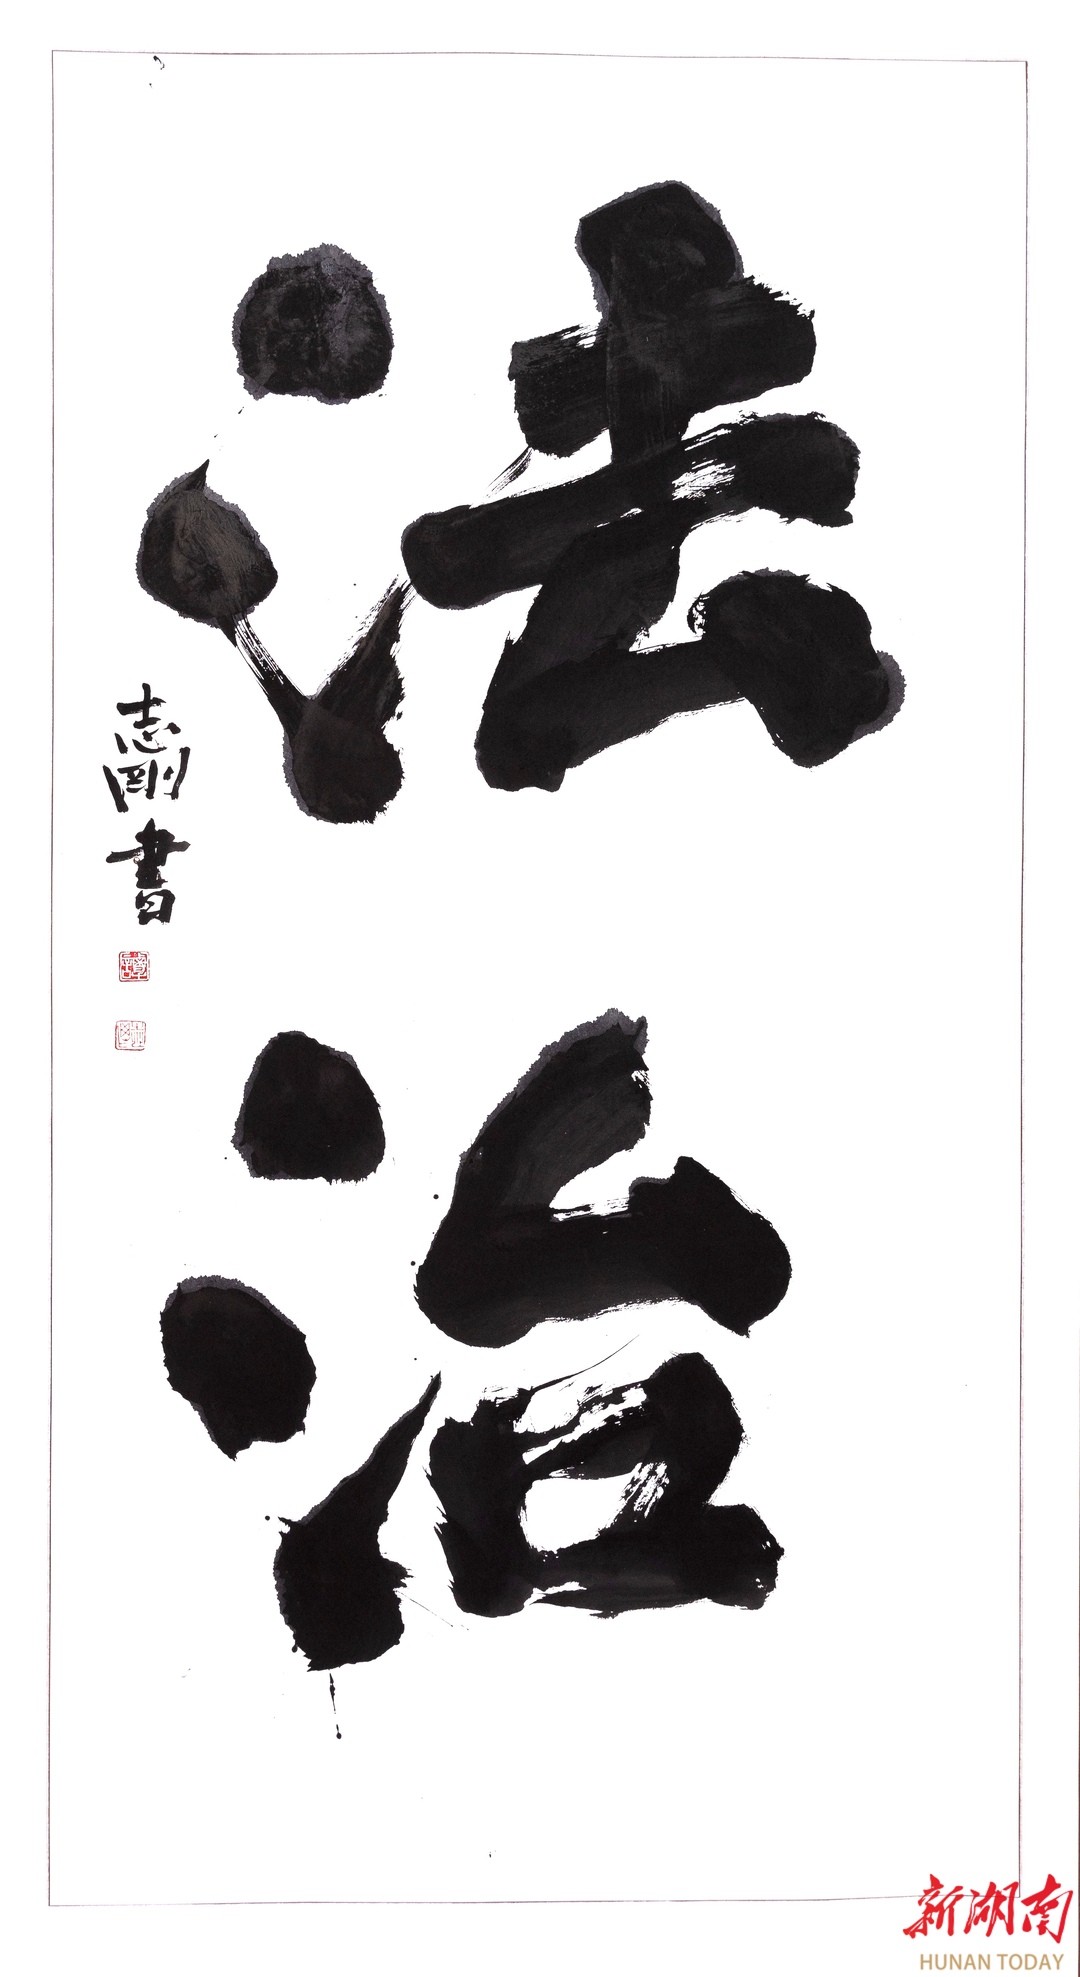 法治
志剛書
新湖南
HUNAN TODAY